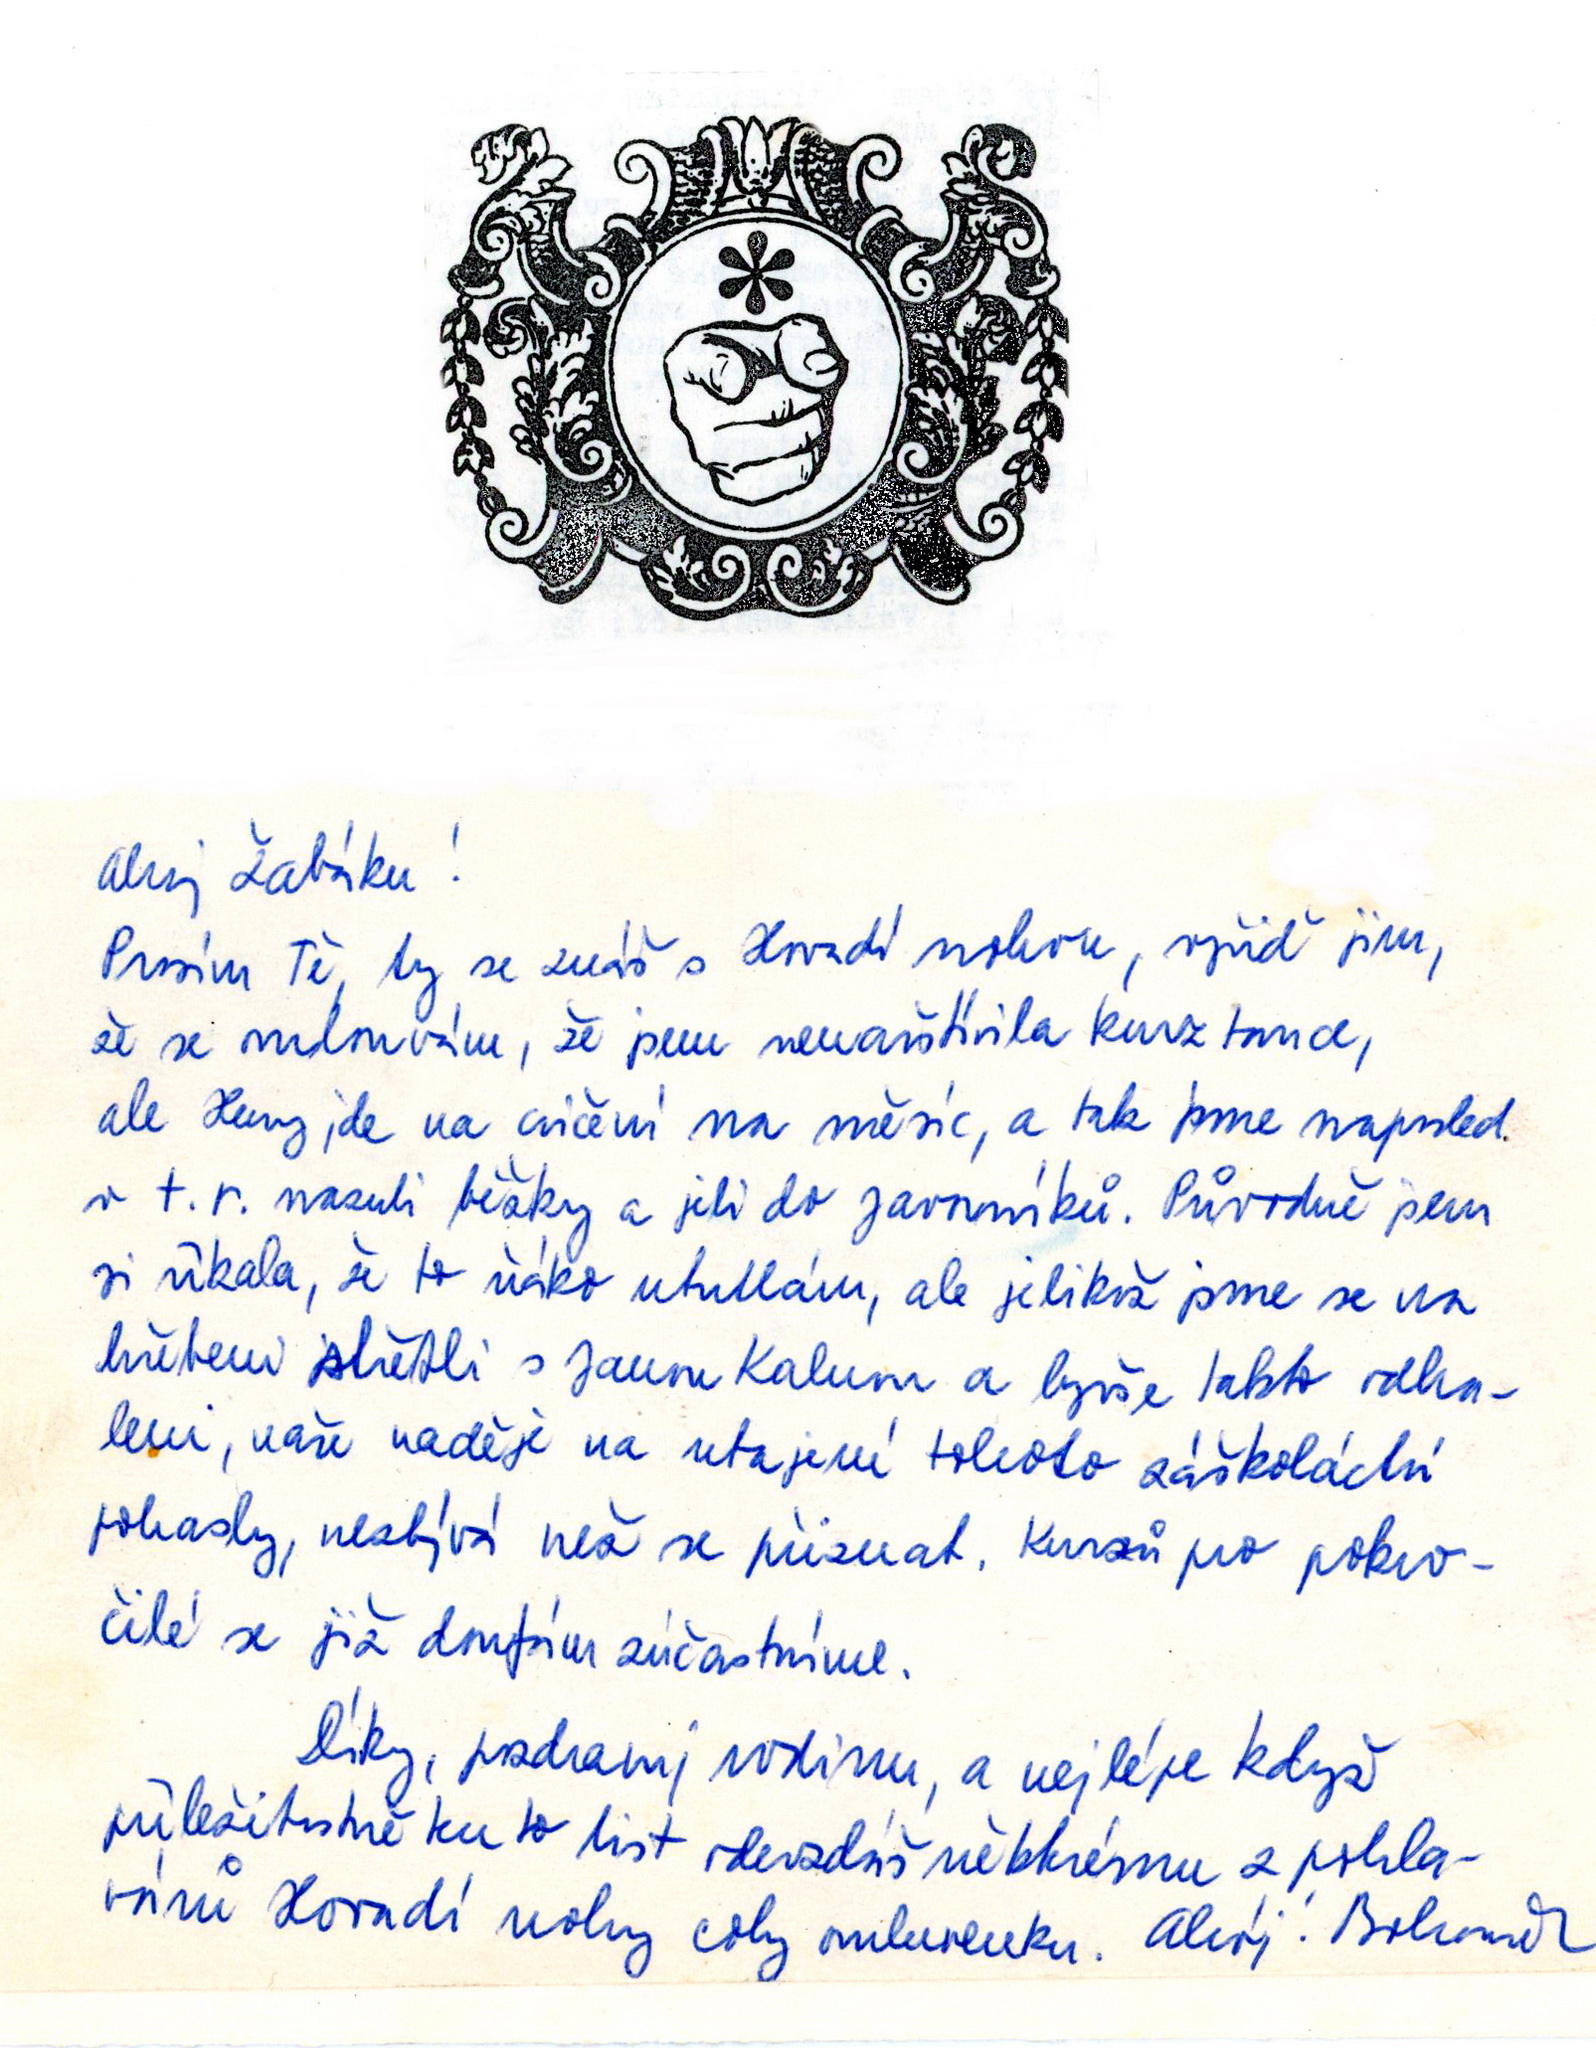 Ahoj Žabáku!
Prosím Tě, ty se znáš s Hovadí nohou, vyřiď jim,
že se omlouvám, že jsem nenavštívila kurz tance,
ale Huny jde na cvičení na měsíc, a tak jsme naposled
v t.r. nazuli běžky a jeli do Javorníků. Původně jsem
si říkala, že to ňáko ututlám, ale jelikož jsme se na
hřebeni střetli s Janem Kalum a byvše takto odha-
leni, naše naděje na utajení tohoto záškoláctví
pohasly, nezbývá než se přiznat. Kurzů pro pokro-
čilé se již doufám zúčastníme.
Díky, pozdravuj rodinu, a nejlépe když
příležitostně tento list odevzdáš některému z pohla-
várů Hovadí nohy coby omluvenku. Ahoj!